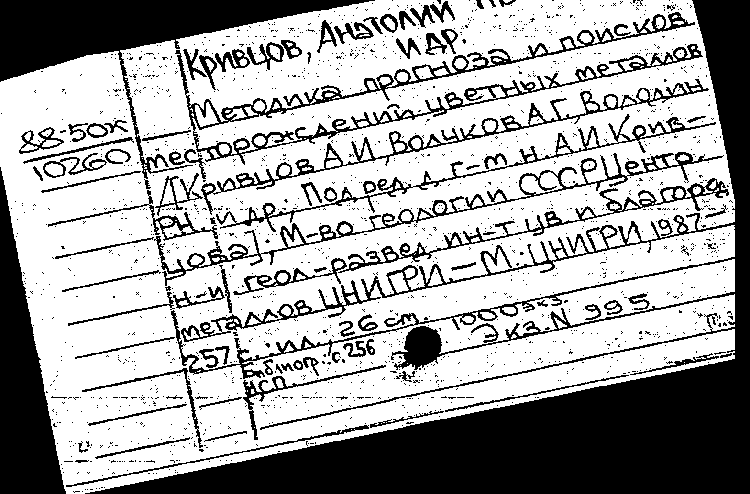 Кривцов, Анатолий
и др.
Методика прогноза и поисков
88-50К
10260
месторождений цветных металлов
/[Кривцов А.И., Волчков А.Г., Володин
Р.Н. и др.; Под ред. д. г.-м. н. А.И. Крив-
цова]; М-во геологии СССР, Центр.
н.-и. геол.-развед. ин-т цв. и благород.
металлов ЦНИГРИ. — М.: ЦНИГРИ, 1987. —
257 с.: ил.; 26 см. 1000 экз.
Библиогр.: с. 256 Экз. N 995.
ДСП